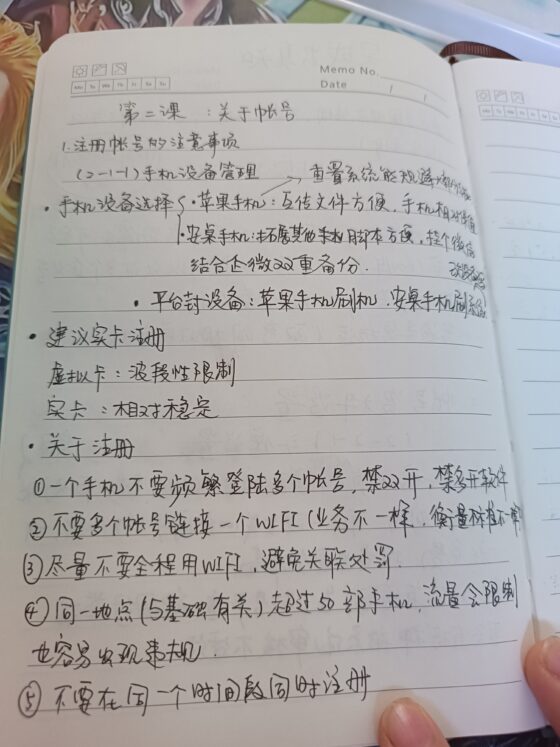 Memo No.
Mo Tu We Th Fr Sa Su
Date / /
第二课 : 关于帐号
1.注册帐号的注意事项
(2-1-1)手机设备管理 → 重置系统能规避
· 手机设备选择 { · 苹果手机: 互传文件方便, 手机相对
· 安桌手机: 其他 脚本方便, 挂个微信
结合企微双重备份.
· 平台封设备: 苹果手机刷机, 安桌手机刷系统
· 建议实卡注册
虚拟卡: 波段性限制
实卡: 相对稳定
· 关于注册
①一个手机不要频繁登陆多个帐号, 禁双开, 禁多开软件
②不要多个帐号链接一个WIFI (业务不一样, 衡量标准不一样)
③尽量不要全程用WIFI, 避免关联处罚.
④同一地点(与基础有关)超过50部手机, 流量会限制
也容易出现违规.
⑤不要在同一个时间段同时注册